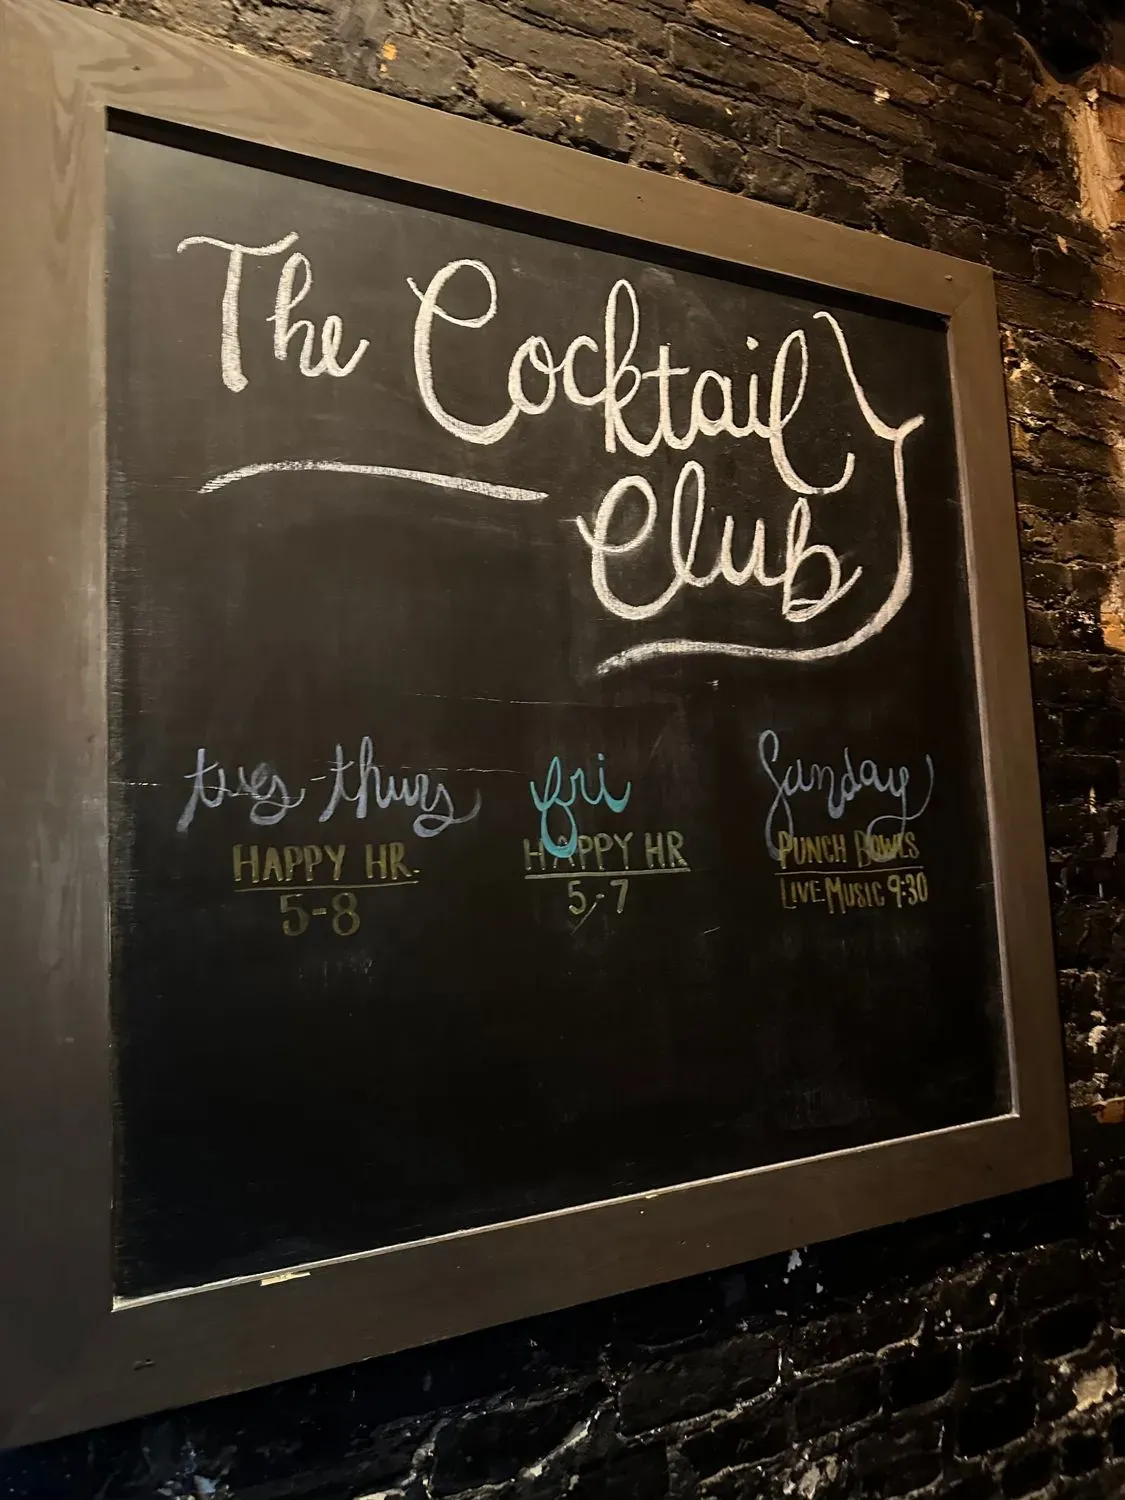 The Cocktail
Club
tues-thurs
HAPPY HR.
5-8
fri
HAPPY HR
5-7
Sunday
PUNCH BOWLS
LIVE MUSIC 9:30